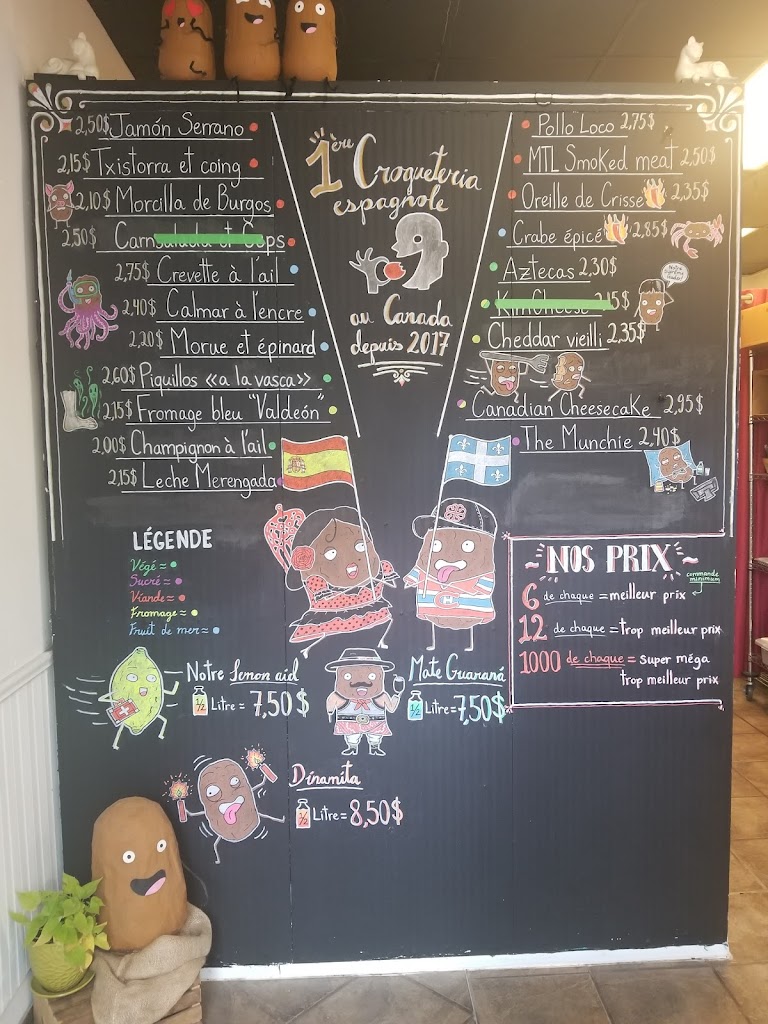 2,50$ Jamón Serrano
2,15$ Txistorra et coing
2,10$ Morcilla de Burgos
2,50$
2,75$ Crevette à l'ail
2,40$ Calmar à l'encre
2,20$ Morue et épinard
2,60$ Piquillos «a la vasca»
2,15$ Fromage bleu "Valdeón"
2,00$ Champignon à l'ail
2,15$ Leche Merengada
1ère Croqueteria
espagnole
au Canada
depuis 2017
Pollo Loco 2,75$
MTL Smoked meat 2,50$
Oreille de Crisse 2,35$
Crabe épicé 2,85$
Aztecas 2,30$
KimCheese
Cheddar vieilli 2,35$
Canadian Cheesecake 2,95$
The Munchie 2,40$
LÉGENDE
Végé =
Sucré =
Viande =
Fromage =
Fruit de mer =
~NOS PRIX~
commande
minimum
6 de chaque = meilleur prix
12 de chaque = trop meilleur prix
1000 de chaque = super méga
trop meilleur prix
Notre Lemon aid
1/2 Litre = 7,50$
Mate Guaraná
1/2 Litre = 7,50$
Dinamita
1/2 Litre = 8,50$